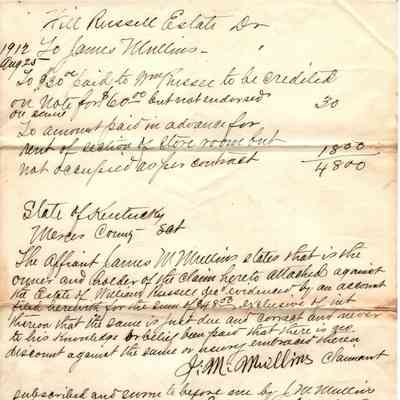 Will Russell Estate Dr
1912 To James Mullins
Aug 25
To $30.00 paid to Wm Russell to be credited
on Note for $60.00 but not endorsed 30
on same
To amount paid in advance for
rent of section of store room but 18 00
not occupied as per contract 48 00
State of Kentucky
Mercer County Sct
The Affiant James M Mullins states that is the
owner and holder of the claim hereto attached against
the Estate of William Russell evidenced by an account
filed herewith for the sum of $48.00 exclusive of int
thereon that the same is just due and correct and never
to his knowledge or belief been paid that there is no
discount against the same or usury embraced therein
J. M. Mullins Claimant
subscribed and sworn to before me by J M Mullins